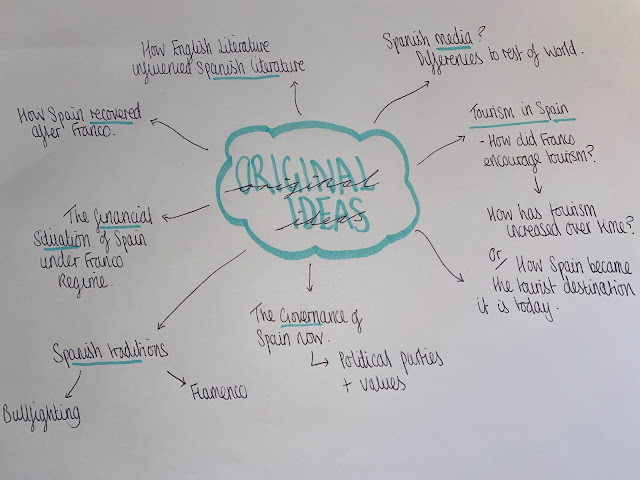 How English Literature
influenced Spanish Literature
Spanish media?
Differences to rest of world.
How Spain recovered
after Franco.
ORIGINAL
original
IDEAS
ideas
Tourism in Spain
- How did Franco
encourage tourism?
How has tourism
increased over time?
Or
How Spain became
the tourist destination
it is today.
The financial
Situation of Spain
under Franco
Regime.
The Governance of
Spain now.
Political parties
+ values
Spanish traditions
Bullfighting
Flamenco